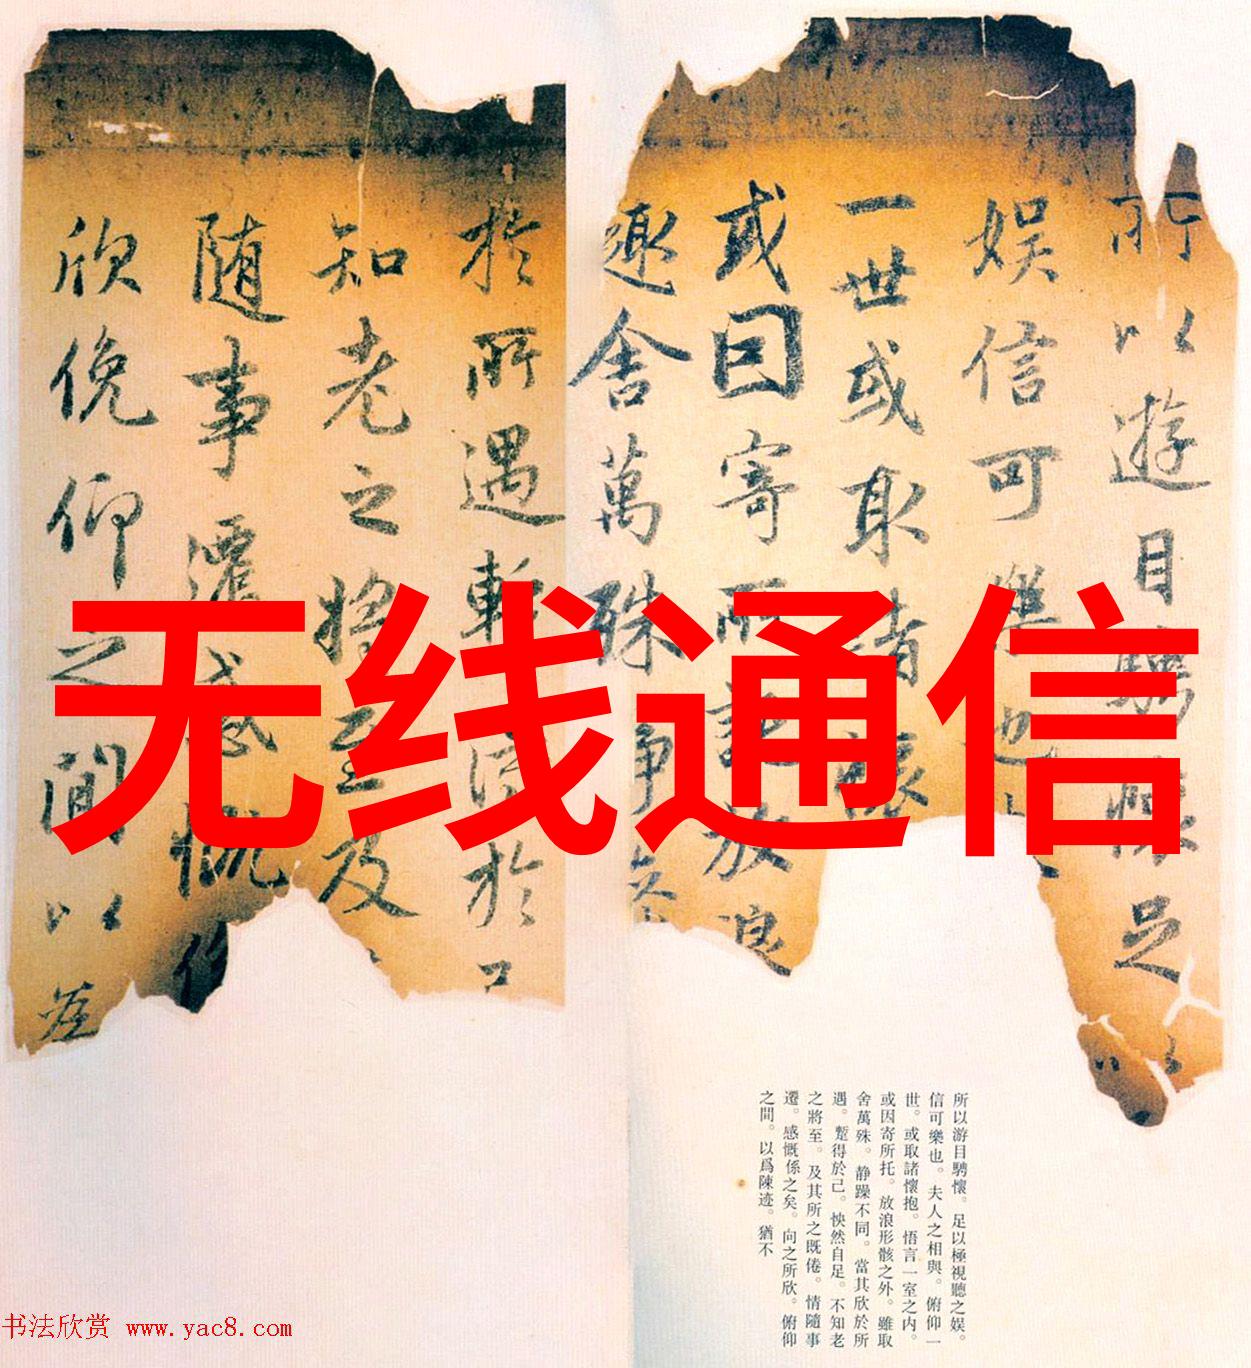 无线通信
所以遊目騁懷足以
娱信可樂也
一世或取諸懷
或因寄所託放浪
趣舍萬殊静
於所遇暫得於己
知老之將至及
随事遷感慨係
欣俛仰之間以為
所以游目騁懷。足以極視聽之娱。
信可樂也。夫人之相與。俯仰一
世。或取諸懷抱。悟言一室之内。
或因寄所托。放浪形骸之外。雖取
舍萬殊。静躁不同。當其欣於所
遇。蹔得於己。怏然自足。不知老
之將至。及其所之既倦。情隨事
遷。感慨係之矣。向之所欣。俯仰
之間。以爲陳迹。猶不
书法欣赏 www.yac8.com